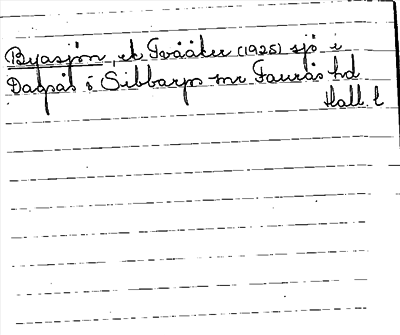 Byasjön, ek Tvååker (1925) sjö i
Dagsås i Sibbarps sn Faurås hd
Hall l